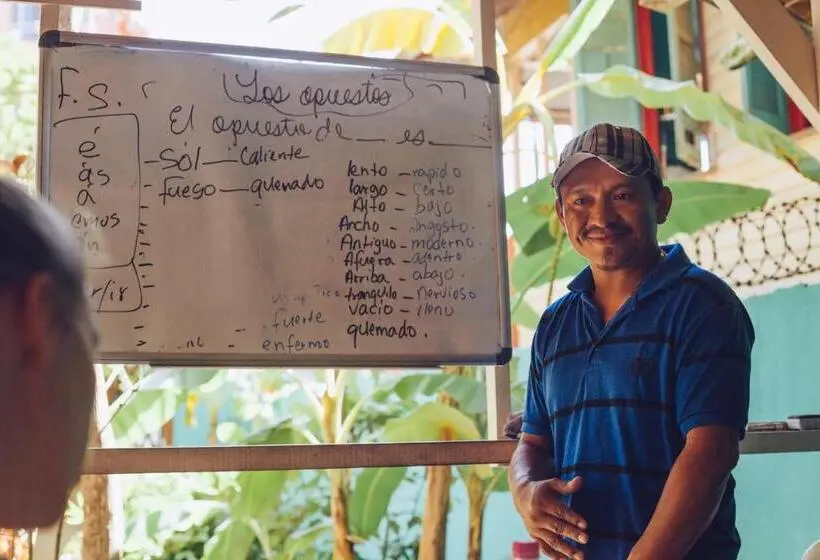 F.S.
Los opuestos
El opuesto de __ es __
é
ás
a
emos
-Sol — Caliente
-fuego — quemado
lento - rapido
largo - corto
Alto - bajo
Ancho - angosto.
Antiguo - moderno.
Afuera - adentro
Arriba - abajo.
tranquilo - nervioso
vacio - lleno
fuerte
quemado.
enfermo
r/ir